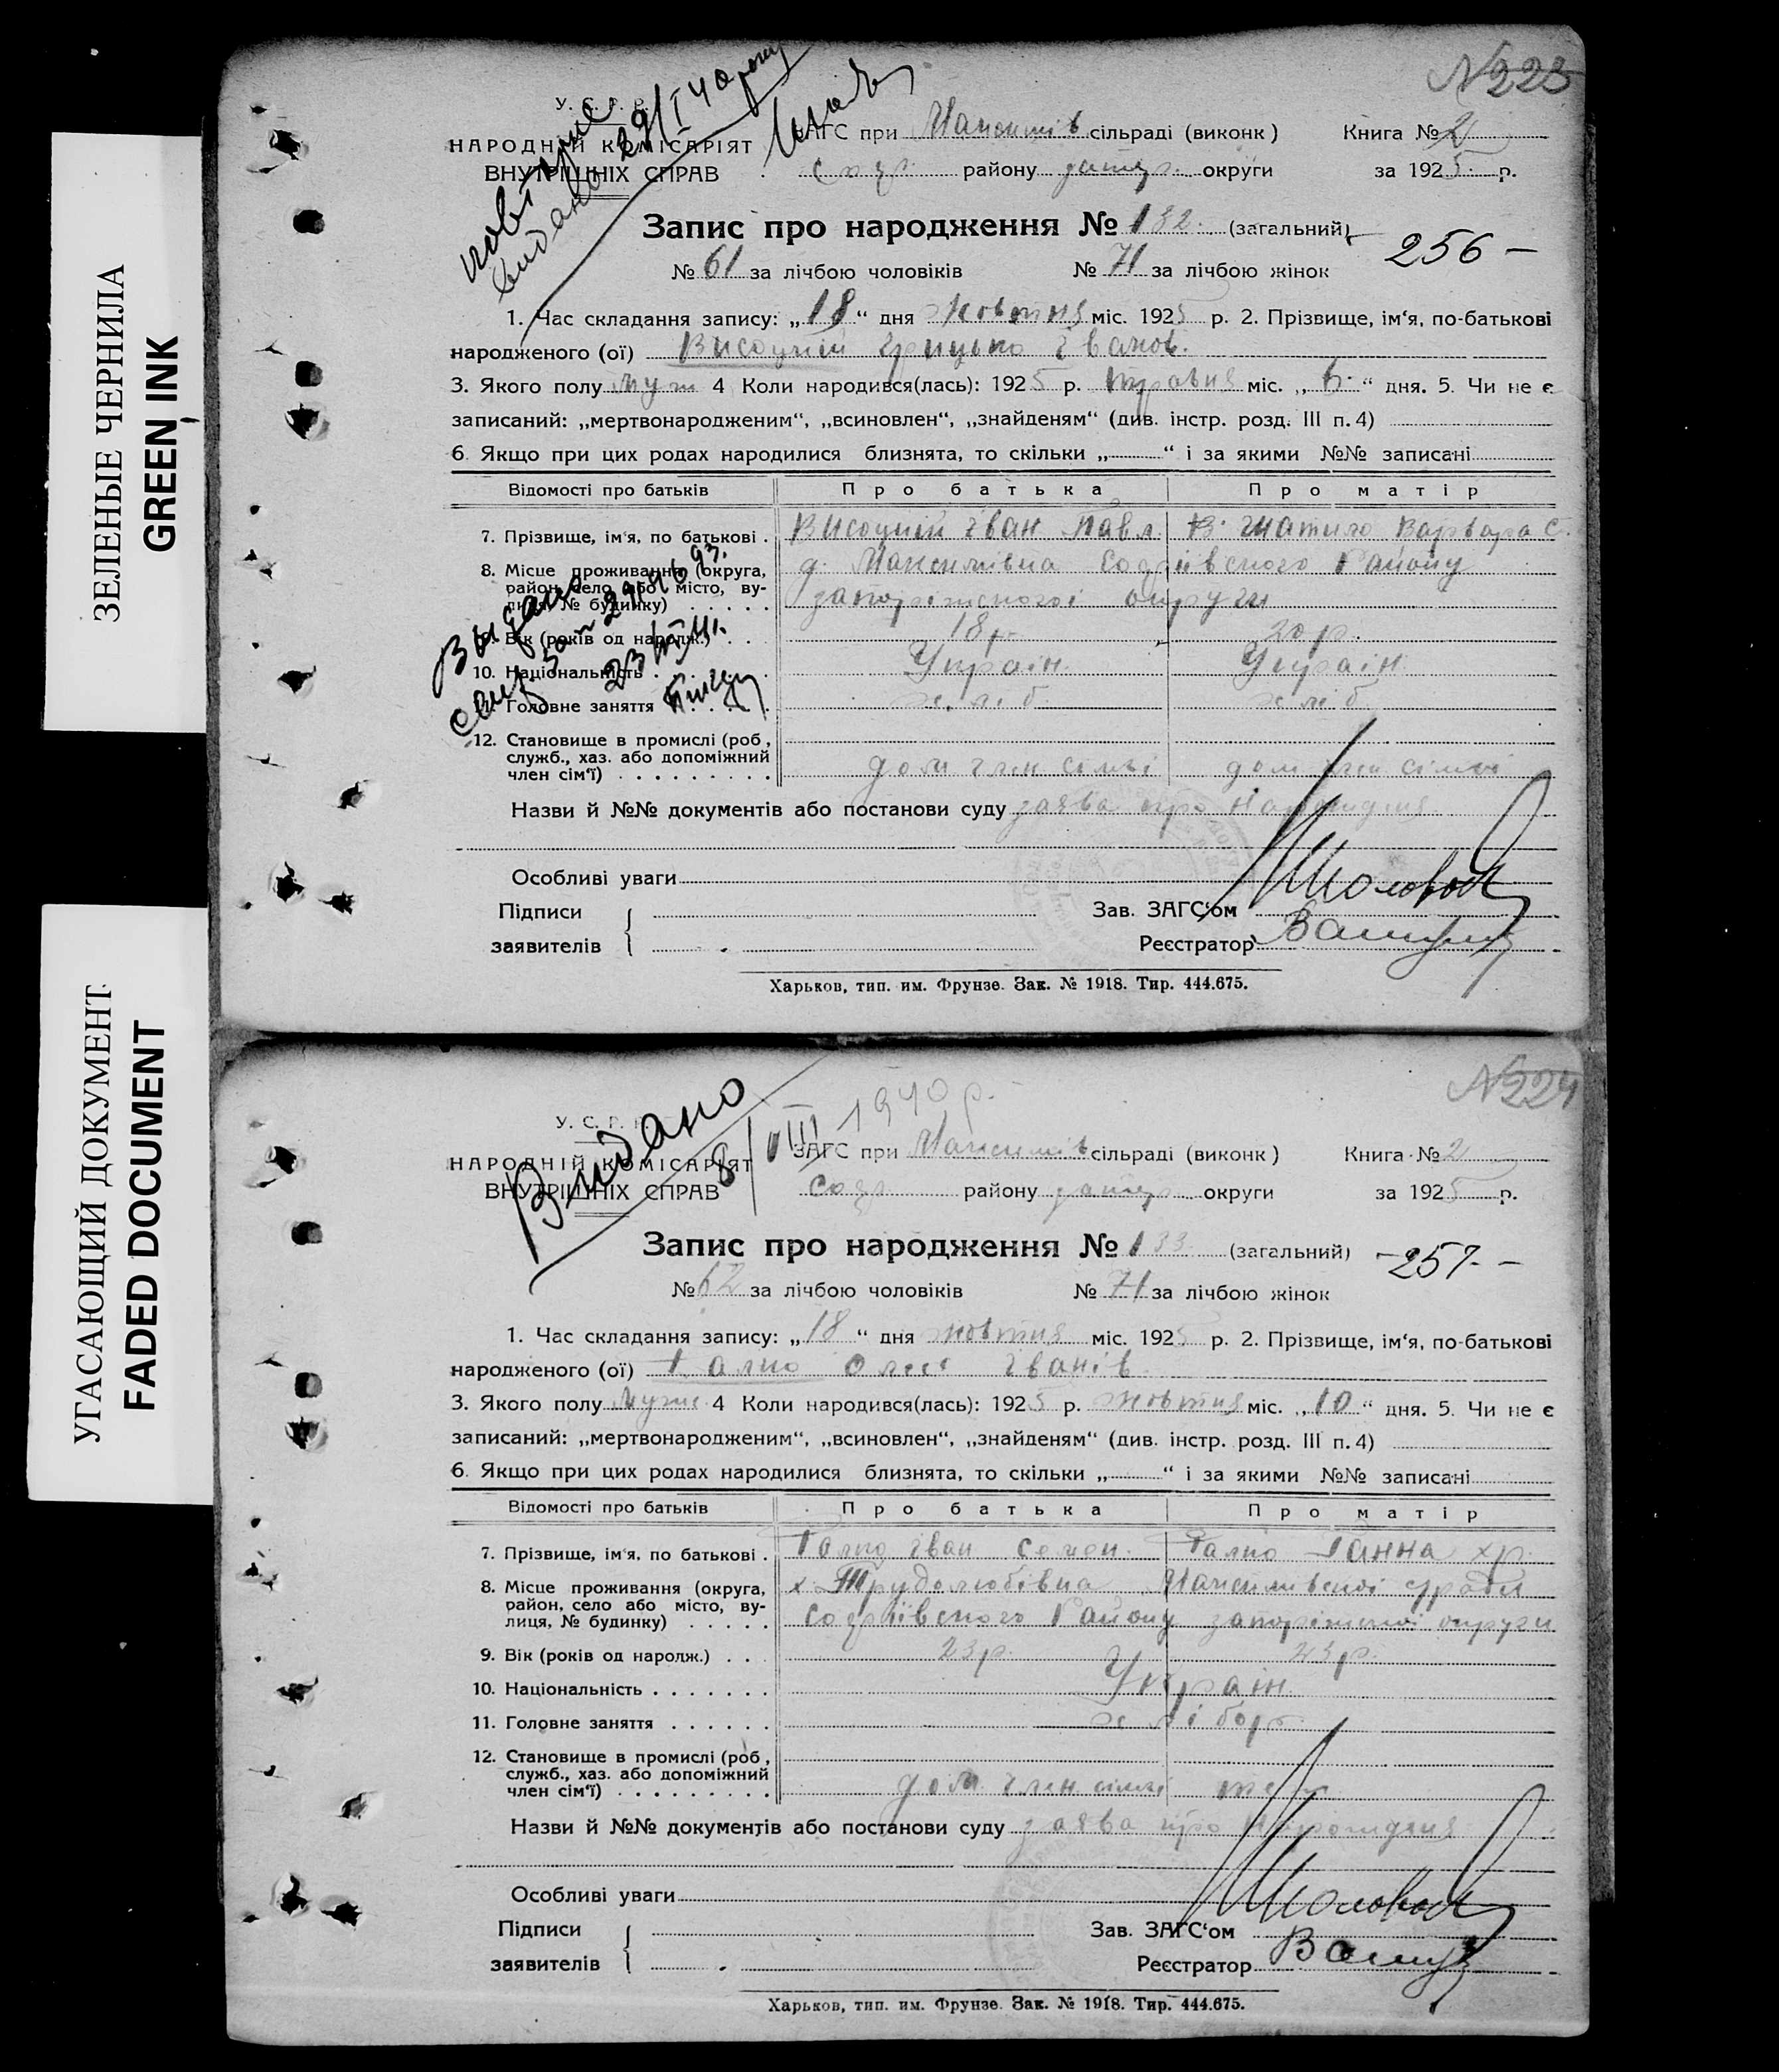 ЗЕЛЕНЫЕ ЧЕРНИЛА
GREEN INK
УГАСАЮЩИЙ ДОКУМЕНТ
FADED DOCUMENT
N 223
У. С. Р. Р.
НАРОДНІЙ КОМІСАРІЯТ
ВНУТРІШНІХ СПРАВ
видано 29/I 40 року
ЗАГС при Максимів сільраді (виконк) Книга № 2
району округи за 1925 р.
Запис про народження № 132 (загальний)
256 —
№ 61 за лічбою чоловіків № 71 за лічбою жінок
1. Час складання запису: „18“ дня жовтня міс. 1925 р. 2. Прізвище, ім‘я, по-батькові
народженого (ої) Висоцкій Грицько Іванов.
3. Якого полу муж 4 Коли народився(лась): 1925 р. травня міс. „6“ дня. 5. Чи не є
записаний: „мертвонародженим“, „всиновлен“, „знайденям“ (див. інстр. розд. III п. 4)
6. Якщо при цих родах народилися близнята, то скільки „ “ і за якими №№ записані
Відомості про батьків Про батька Про матір
7. Прізвище, ім‘я, по батькові . Висоцкій Іван Павл. Варвара С.
8. Місце проживання (округа, район, село або місто, вулиця, № будинку) Району
округи
9. Вік (років од народж.) 18 р. 20 р.
10. Національність Україн. Україн.
11. Головне заняття хліб. хліб.
12. Становище в промислі (роб, служб., хаз. або допоміжний член сім‘ї) дом член сімьі дом член сімьі
Выдано
Назви й №№ документів або постанови суду заява про народження
Особливі уваги
Підписи Зав. ЗАГС‘ом
заявителів Реєстратор
Харьков, тип. им. Фрунзе. Зак. № 1918. Тир. 444.675.
N 224
У. С. Р. Р.
НАРОДНІЙ КОМІСАРІЯТ
ВНУТРІШНІХ СПРАВ
Видано
8/VIII 1940 р.
ЗАГС при Максимів сільраді (виконк) Книга № 2
району округи за 1925 р.
Запис про народження № 133 (загальний)
— 257 —
№ 62 за лічбою чоловіків № 71 за лічбою жінок
1. Час складання запису: „18“ дня жовтня міс. 1925 р. 2. Прізвище, ім‘я, по-батькові
народженого (ої) Галко Іванів
3. Якого полу муж 4 Коли народився(лась): 1925 р. жовтня міс. „10“ дня. 5. Чи не є
записаний: „мертвонародженим“, „всиновлен“, „знайденям“ (див. інстр. розд. III п. 4)
6. Якщо при цих родах народилися близнята, то скільки „ “ і за якими №№ записані
Відомості про батьків Про батька Про матір
7. Прізвище, ім‘я, по батькові . Галко Іван Семен. Галко Ганна Хр.
8. Місце проживання (округа, район, село або місто, вулиця, № будинку) х. Трудолюбівка
Району округи
9. Вік (років од народж.) 23 р. 23 р.
10. Національність Україн.
11. Головне заняття хлібор.
12. Становище в промислі (роб, служб., хаз. або допоміжний член сім‘ї) дом член сімьі
Назви й №№ документів або постанови суду заява про народження
Особливі уваги
Підписи Зав. ЗАГС‘ом
заявителів Реєстратор
Харьков, тип. им. Фрунзе. Зак. № 1918. Тир. 444.675.